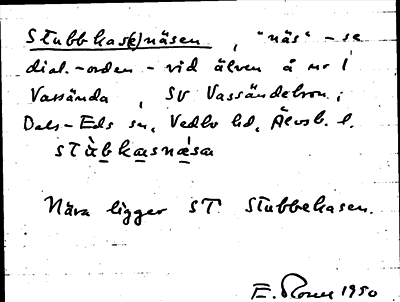 Stubbkas(e)näsen, "näs" - se
dial.-orden - vid älven å nr 1
Vassända, SV Vassändebron;
Dals-Eds sn, Vedbo hd, Älvsb. l.
stùbkasnæ̀sa
Nära ligger ST Stubbekasen.
E. 1950